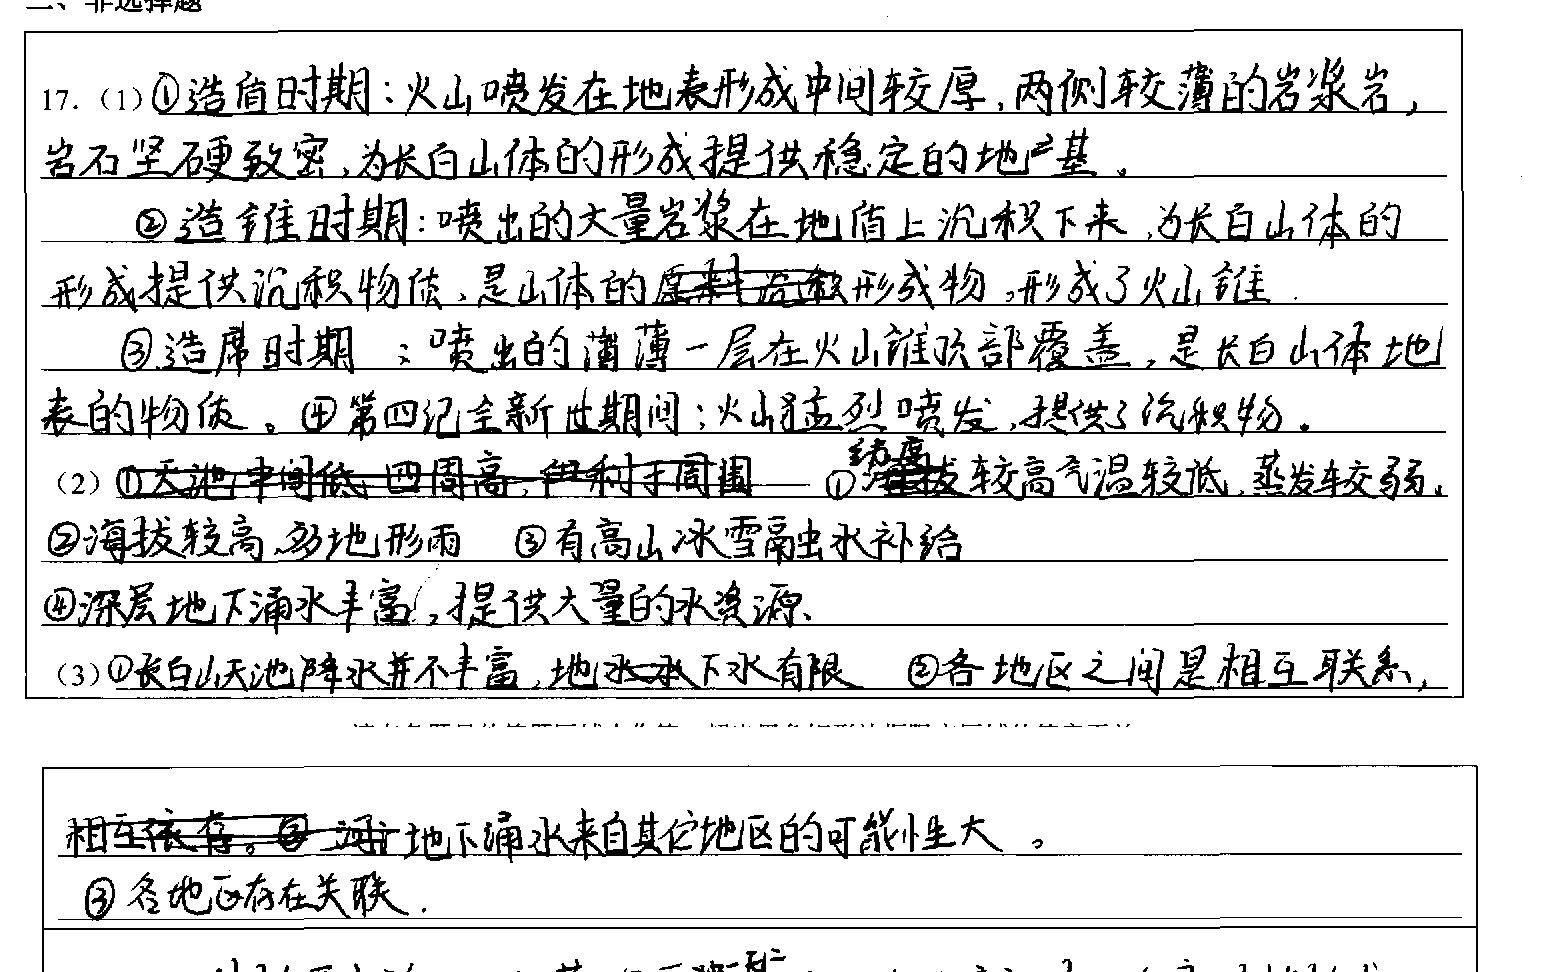 二、非选择题
17.（1）①造盾时期：火山喷发在地表形成中间较厚，两侧较薄的岩浆岩，
岩石坚硬致密，为长白山体的形成提供稳定的地基。
②造锥时期：喷出的大量岩浆在地盾上沉积下来，为长白山体的
形成提供沉积物质，是山体的形成物，形成了火山锥.
③造席时期：喷出的薄薄一层在火山锥顶部覆盖，是长白山体地
表的物质。④第四纪全新世期间：火山猛烈喷发，提供了沉积物.
（2）①天池中间低，四周高，但利于周围 ①纬度较高气温较低，蒸发较弱.
②海拔较高，多地形雨 ③有高山冰雪融水补给
④深层地下涌水丰富，提供大量的水资源.
（3）①长白山天池降水并不丰富，地下水有限 ②各地区之间是相互联系，
相互依存。地下涌水来自其它地区的可能性大。
③各地区存在关联.